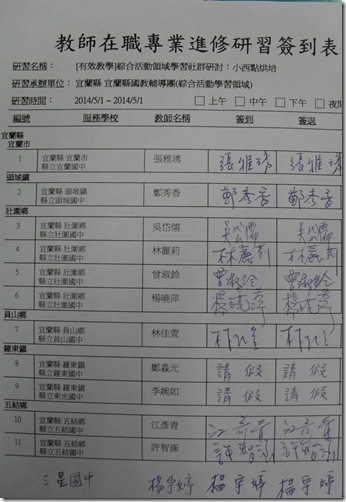 教師在職專業進修研習簽到表
研習名稱： [有效教學]綜合活動領域學習社群研討：小西點烘培
研習承辦單位： 宜蘭縣 宜蘭縣國教輔導團(綜合活動學習領域)
研習時間： 2014/5/1 ~ 2014/5/1 □上午 □中午 □下午 □夜間
編號 服務學校 教師名稱 簽到 簽退
宜蘭縣
宜蘭市
1 宜蘭縣 宜蘭市 縣立宜蘭國中 張雅琇 張雅琇 張雅琇
頭城鎮
2 宜蘭縣 頭城鎮 縣立頭城國中 鄭秀香 鄭秀香 鄭秀香
壯圍鄉
3 宜蘭縣 壯圍鄉 縣立壯圍國中 吳岱儒 吳岱儒 吳岱儒
4 宜蘭縣 壯圍鄉 縣立壯圍國中 林麗莉 林麗莉 林麗莉
5 宜蘭縣 壯圍鄉 縣立壯圍國中 曾淑鈴 曾淑鈴 曾淑鈴
6 宜蘭縣 壯圍鄉 縣立壯圍國中 楊曉萍 楊曉萍 楊曉萍
員山鄉
7 宜蘭縣 員山鄉 縣立員山國中 林佳萱
羅東鎮
8 宜蘭縣 羅東鎮 縣立羅東國中 鄭焱元 請假 請假
9 宜蘭縣 羅東鎮 縣立東光國中 李婉如 請假 請假
五結鄉
10 宜蘭縣 五結鄉 縣立五結國中 江彥青 江彥青 江彥青
11 宜蘭縣 五結鄉 縣立五結國中 許智涵 許智涵 許智涵
三星國中 楊宇婷 楊宇婷 楊宇婷